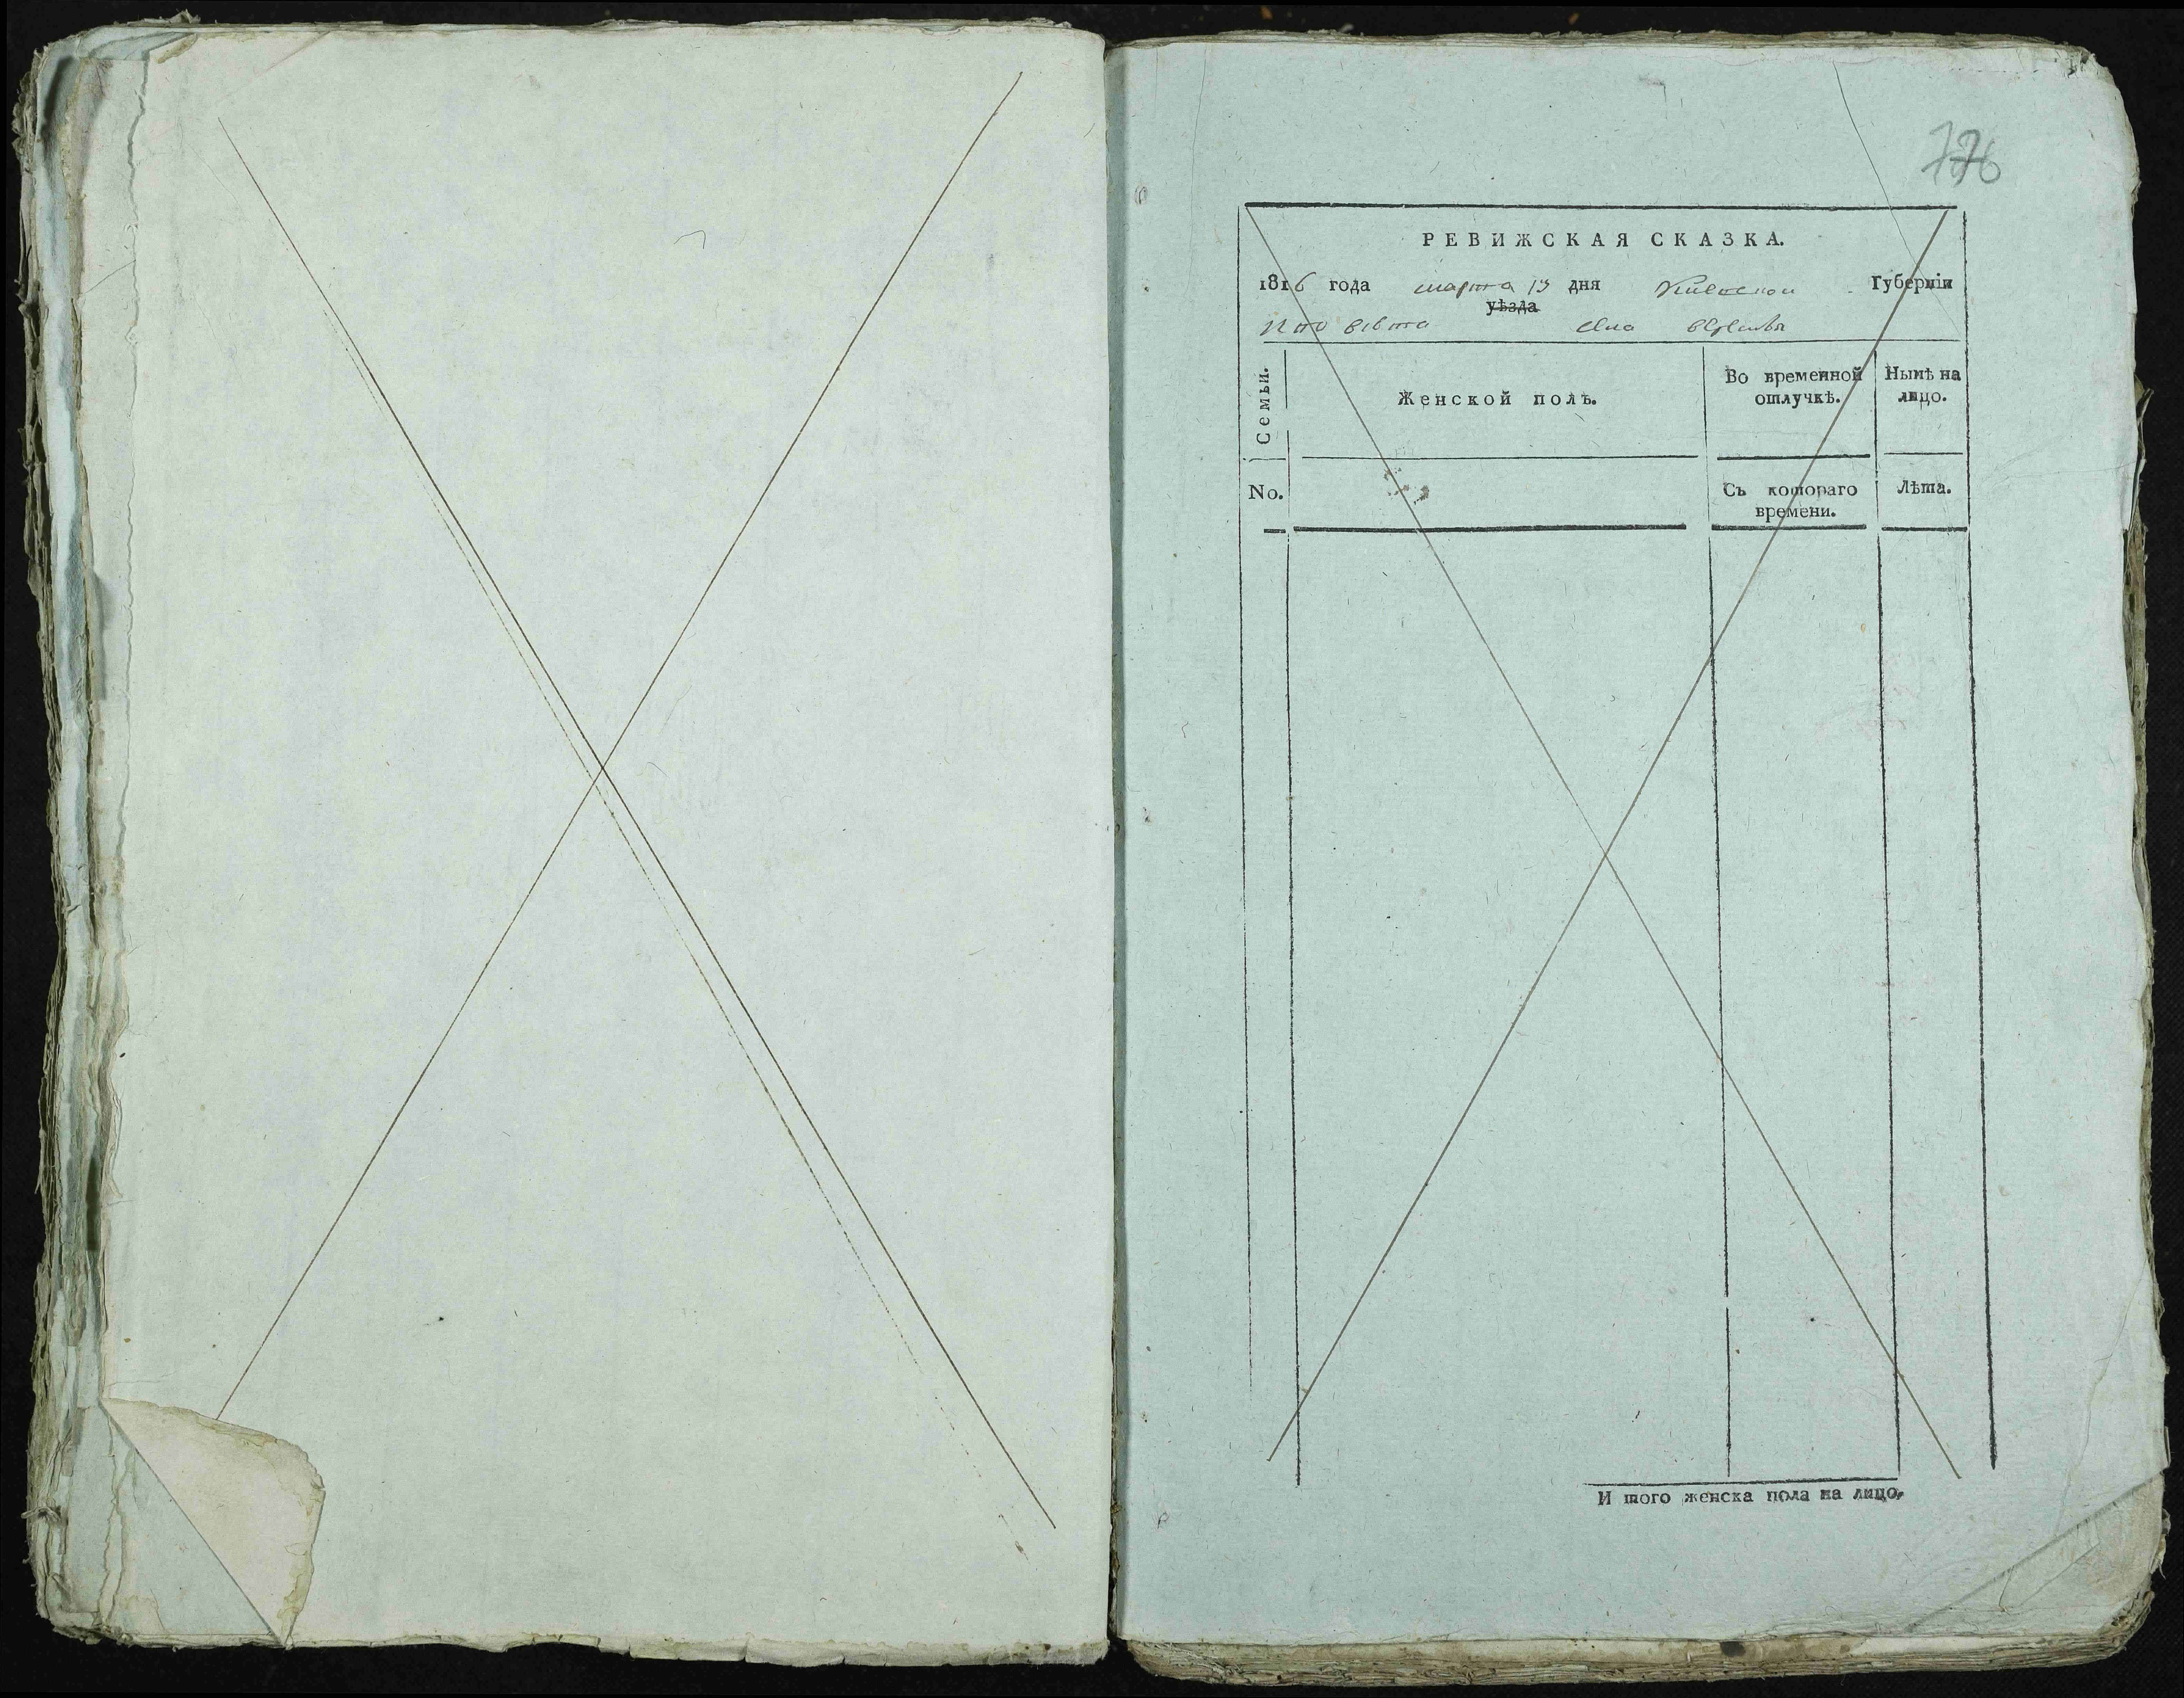 РЕВИЖСКАЯ СКАЗКА.
1816 года марта 13 дня Киевской Губерніи
уѣзда
села
Семьи.
Женской полъ.
Во временной отлучкѣ.
Нынѣ на лицо.
No.
Съ котораго времени.
Лѣта.
И того женска пола на лицо,